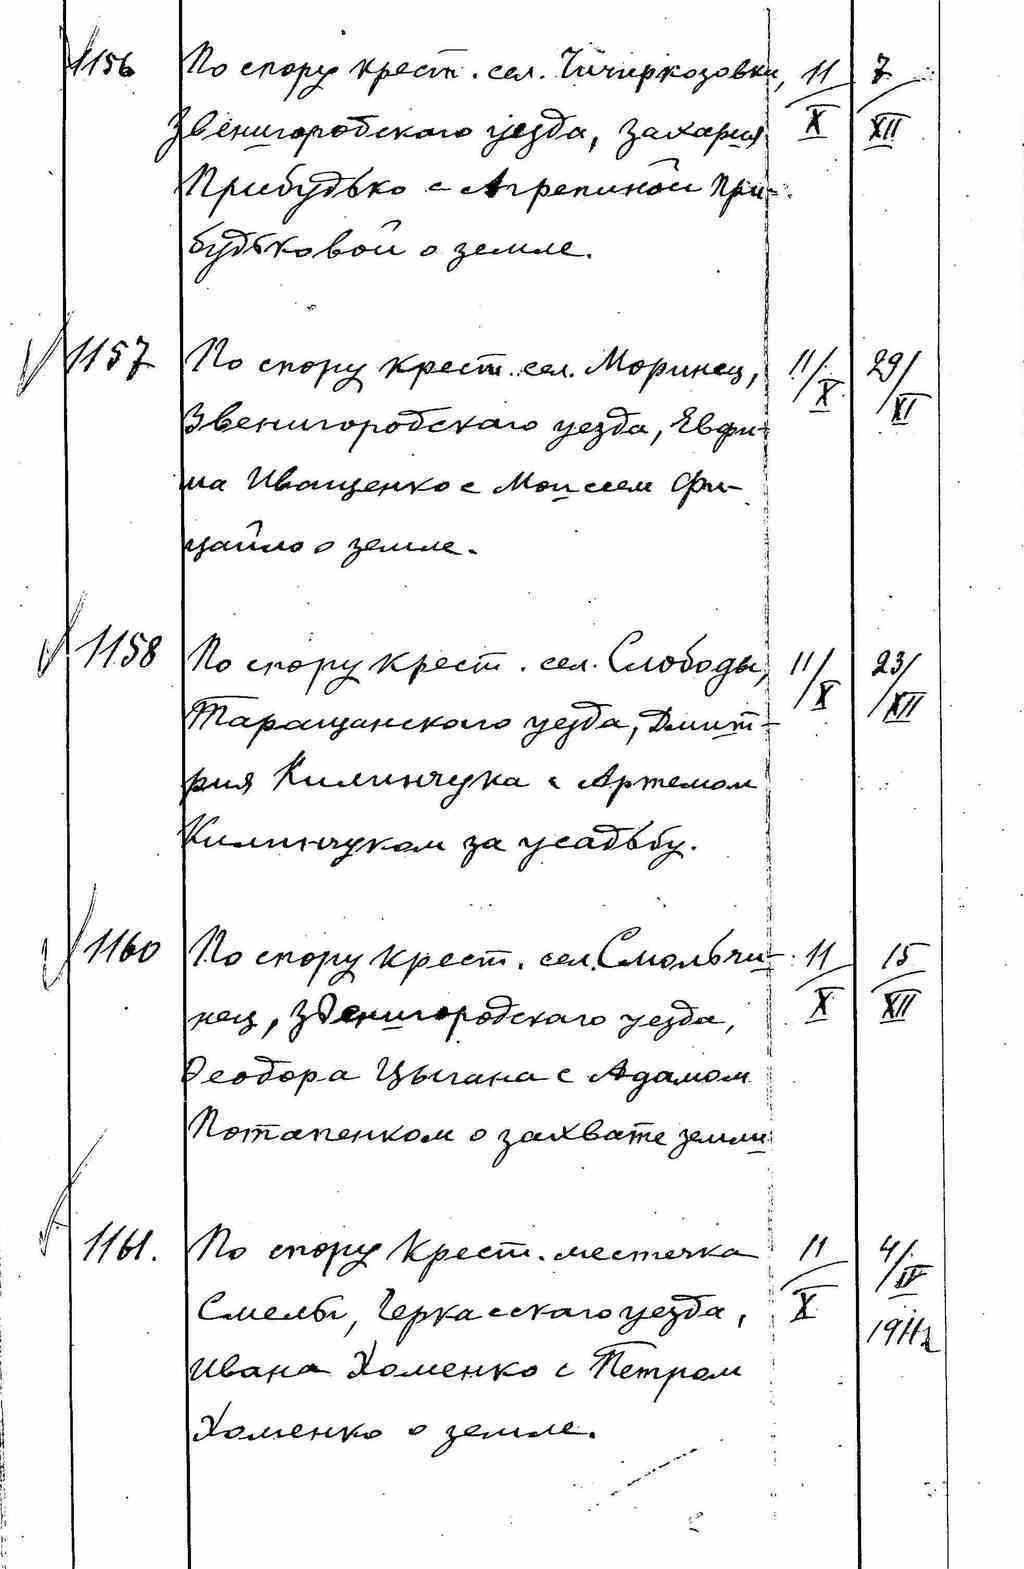 1156 По спору крест. сел. Чичиркозовки, 11/X 7/XII
Звенигородского уезда, Захария
Прибудько с Агрепиной При-
будьковой о земле.
1157 По спору крест. сел. Моринец, 11/X 29/XI
Звенигородского уезда, Евфи-
ма Иващенко с Моисеем Фи-
цайло о земле.
1158 По спору крест. сел. Слободы, 11/X 23/XII
Таращанского уезда, Дмит-
рия Килинчука с Артемом
Килинчуком за усадьбу.
1160 По спору крест. сел. Смольчи- 11/X 15/XII
нец, Звенигородского уезда,
Феодора Цыгана с Адамом
Потапенком о захвате земли
1161. По спору крест. местечка 11/X 4/IV
Смелы, Черкасского уезда, 1911г
Ивана Хоменко с Петром
Хоменко о земле.